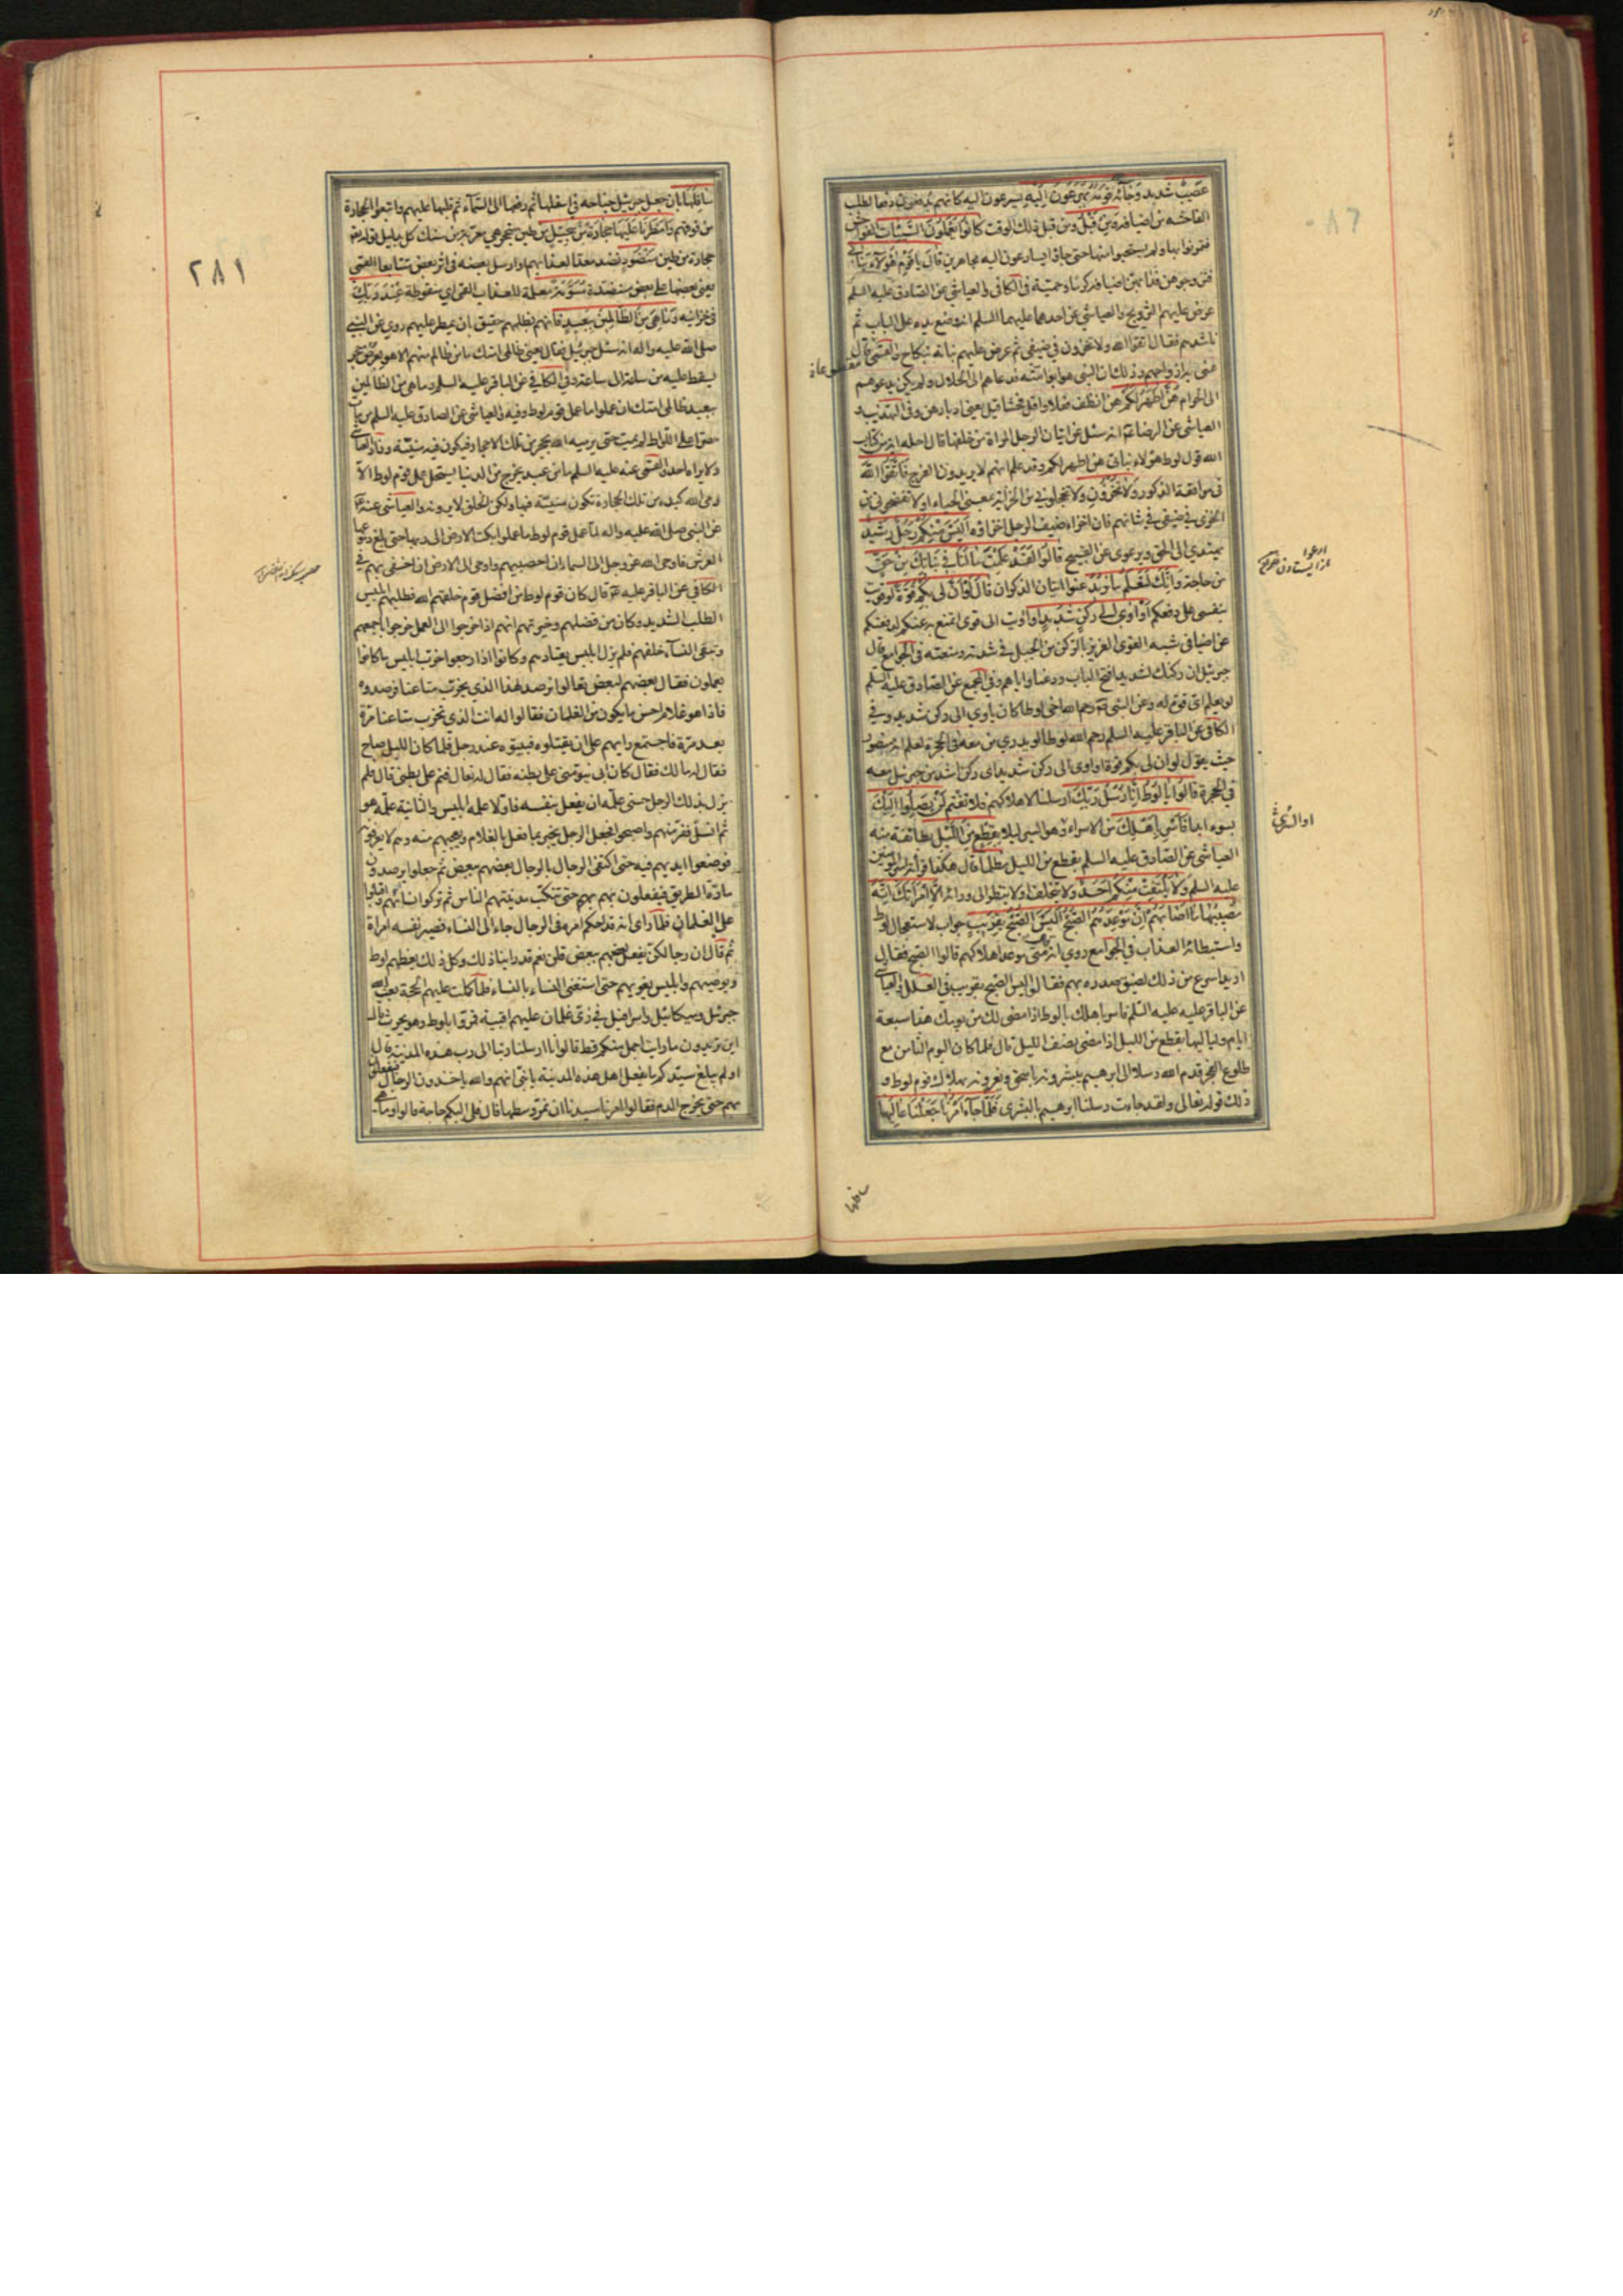 عصيب شديد وجآءه قومه يهرعون اليه يسرعون اليه كانهم يدفعون دفعا لطلب
الفاحشة من اضيافه ومن قبل ومن قبل ذلك الوقت كانوا يعملون السيئات الفواحش
فتمرنوا بها ولم يستحيوا منها حتى جاؤا يسارعون اليه مجاهرين قال يا قوم هؤلاء بناتي
فتزوجوهن فدا بهن اضيافه كرما وحمية في الكافي والعياشي عن الصادق عليه السلم
عرض عليهم التزويج والعياشي عن احدهما عليهما السلم انه وضع يده على الباب ثم
ناشدهم فقال اتقوا الله ولا تخزون في ضيفي ثم عرض عليهم بناته بنكاح والقمي قال
عنى به ازواجهم وذلك ان النبي هو ابو امته فدعاهم الى الحلال ولم يكن يدعوهم
الى الحرام هن اطهر لكم هن انظف فعلا واقل فحشا قيل يعني ادبارهن وفي التهذيب و
العياشي عن الرضا انه سئل عن اتيان الرجل المراة من خلفها قال احله اية من كتاب
الله قول لوط هؤلاء بناتي هن اطهر لكم وقد علم انهم لا يريدون الفرج فاتقوا الله
في مواقعة الذكور ولا تخزون ولا تخجلوني من الخزاية بمعنى الحياء او لا تفضحوني من
الخزي في ضيفي في شانهم فان اخزاء ضيف الرجل اخزاؤه اليس منكم رجل رشيد
يهتدي الى الحق ويرعوي عن القبيح قالوا لقد علمت ما لنا في بناتك من حق
من حاجة وانك لتعلم ما نريد عنوا اتيان الذكران قال لو ان لي بكم قوة لو قويت
بنفسي على دفعكم او اوي الى ركن شديد او اويت الى قوي اتمنع به عنكم لدفعتكم
عن اضيافي شبه القوي العزيز بالركن من الجبل في شدته ومنعته في الجوامع قال
جبرئيل ان ركنك لشديد افتح الباب ودعنا واياهم وفي المجمع عن الصادق عليه السلم
لو يعلم اي قوة له وعن النبي رحم الله اخي لوطا كان ياوي الى ركن شديد وفي
الكافي عن الباقر عليه السلم رحم الله لوطا لو يدري من معه في الحجرة لعلم انه منصور
حيث يقول لو ان لي بكم قوة او اوي الى ركن شديد اي ركن اشد من جبرئيل معه
في الحجرة قالوا يا لوط انا رسل ربك ارسلنا لاهلاكهم فلا تغتم لن يصلوا اليك
بسوء ابدا فاسر باهلك من الاسراء وهو السير ليلا بقطع من الليل بطائفة منه
العياشي عن الصادق عليه السلم بقطع من الليل مظلما قال هكذا قراة امير المؤمنين
عليه السلم ولا يلتفت منكم احد ولا يتخلف ولا ينظر الى ورائه الا امراتك انه
مصيبها ما اصابهم ان موعدهم الصبح اليس الصبح بقريب جواب لاستعجال لوط
واستبطائه العذاب في الجوامع روي انه متى موعد اهلاكهم قالوا الصبح فقال
اريد اسرع من ذلك لضيق صدره بهم فقالوا اليس الصبح بقريب في العلل والعياشي
عن الباقر عليه السلم فاسر باهلك يا لوط اذا مضى لك من يومك هذا سبعة
ايام ولياليها بقطع من الليل اذا مضى نصف الليل قال فلما كان اليوم الثامن مع
طلوع الفجر قدم الله رسلا الى ابرهيم يبشرونه باسحق ويعزونه بهلاك قوم لوط و
ذلك قوله تعالى ولقد جاءت رسلنا ابرهيم بالبشرى فلما جآء امرنا جعلنا عاليها
او السري
سافلها
٢٨١
سافلها بان جعل جبرئيل جناحه في اسفلها ثم رفعها الى السمآء ثم قلبها عليهم واتبعوا الحجارة
من فوقهم وامطرنا عليها حجارة من سجيل من طين متحجر هي معربة من سنك كل بدليل قوله
حجارة من طين منضود نضد معدا لعذابهم او ارسل بعضه في اثر بعض متتابعا القمي
يعني بعضها على بعض منضدة مسومة معلمة للعذاب القمي اي منقوطة عند ربك
في خزاينه وما هي من الظالمين ببعيد فانهم بظلمهم حقيق بان يمطر عليهم روي عن النبي
صلى الله عليه واله انه سئل جبرئيل فقال يعني ظالمي امتك ما من ظالم منهم الا هو بعرض حجر
يسقط عليه من ساعة الى ساعة وفي الكافي عن الباقر عليه السلم وما هي من الظالمين
ببعيد ظالمي امتك ان عملوا ما عمل قوم لوط وفيه والعياشي عن الصادق عليه السلم من بات
مصرا على اللواط لم يمت حتى يرميه الله بحجر من تلك الاحجار فيكون فيه منيته وزاد العياشي
ولا يراه احد والقمي عنه عليه السلم ما من عبد يخرج من الدنيا يستحل عمل قوم لوط الا
رمى الله كبده من تلك الحجارة تكون منيته فيها ولكن الخلق لا يرونه والعياشي عنه
عن النبي صلى الله عليه واله لما عمل قوم لوط ما عملوا بكت الارض الى ربها حتى بلغ دموعها
العرش فاوحى الله عز وجل الى السماء ان احصبيهم واوحى الى الارض ان اخسفي بهم في
الكافي عن الباقر عليه قال كان قوم لوط من افضل قوم خلقهم الله فطلبهم ابليس
الطلب الشديد وكان من فضلهم وخيرتهم انهم اذا خرجوا الى العمل خرجوا باجمعهم
وتبقى النسآء خلفهم فلم يزل ابليس يعتادهم وكانوا اذا رجعوا خرب ابليس ما كانوا
يعملون فقال بعضهم لبعض تعالوا نرصد لهذا الذي يخرب متاعنا فرصدوه
فاذا هو غلام احسن ما يكون من الغلمان فقالوا له انت الذي تخرب متاعنا مرة
بعد مرة فاجتمع رايهم على ان يقتلوه فبيتوه عند رجل فلما كان الليل صاح
فقال له مالك فقال كان ابي ينومني على بطنه فقال له تعال فنم على بطني قال فلم
يزل بذلك الرجل حتى علمه ان يفعل بنفسه فاولا علمه ابليس والثانية علمه هو
ثم انسل ففر منهم واصبحوا فجعل الرجل يخبر بما فعل بالغلام ويعجبهم منه وهم لا يعرفونه
فوضعوا ايديهم فيه حتى اكتفى الرجال بالرجال بعضهم ببعض ثم جعلوا يرصدون
مارة الطريق فيفعلون بهم حتى تنكب مدينتهم الناس ثم تركوا نسائهم واقبلوا
على الغلمان فلما راى انه قد احكم امره في الرجال جاء الى النساء فصير نفسه امراة
ثم قال ان رجالكن يفعل بعضهم ببعض قلن نعم قد راينا ذلك وكل ذلك يعظهم لوط
ويوصيهم وابليس يغويهم حتى استغنى النساء بالنساء فلما كملت عليهم الحجة بعث الله
جبرئيل وميكائيل واسرافيل في زي غلمان عليهم اقبية فمروا بلوط وهو يحرث قال
اين تريدون ما رايت اجمل منكم قط قالوا انا ارسلنا ربنا الى رب هذه المدينة قال
اولم يبلغ سيدكم ما يفعل اهل هذه المدينة يا بني انهم والله ياخذون الرجال فيفعلون
بهم حتى يخرج الدم فقالوا امرنا سيدنا ان نمر وسطها قال فلي اليكم حاجة قالوا وما هي